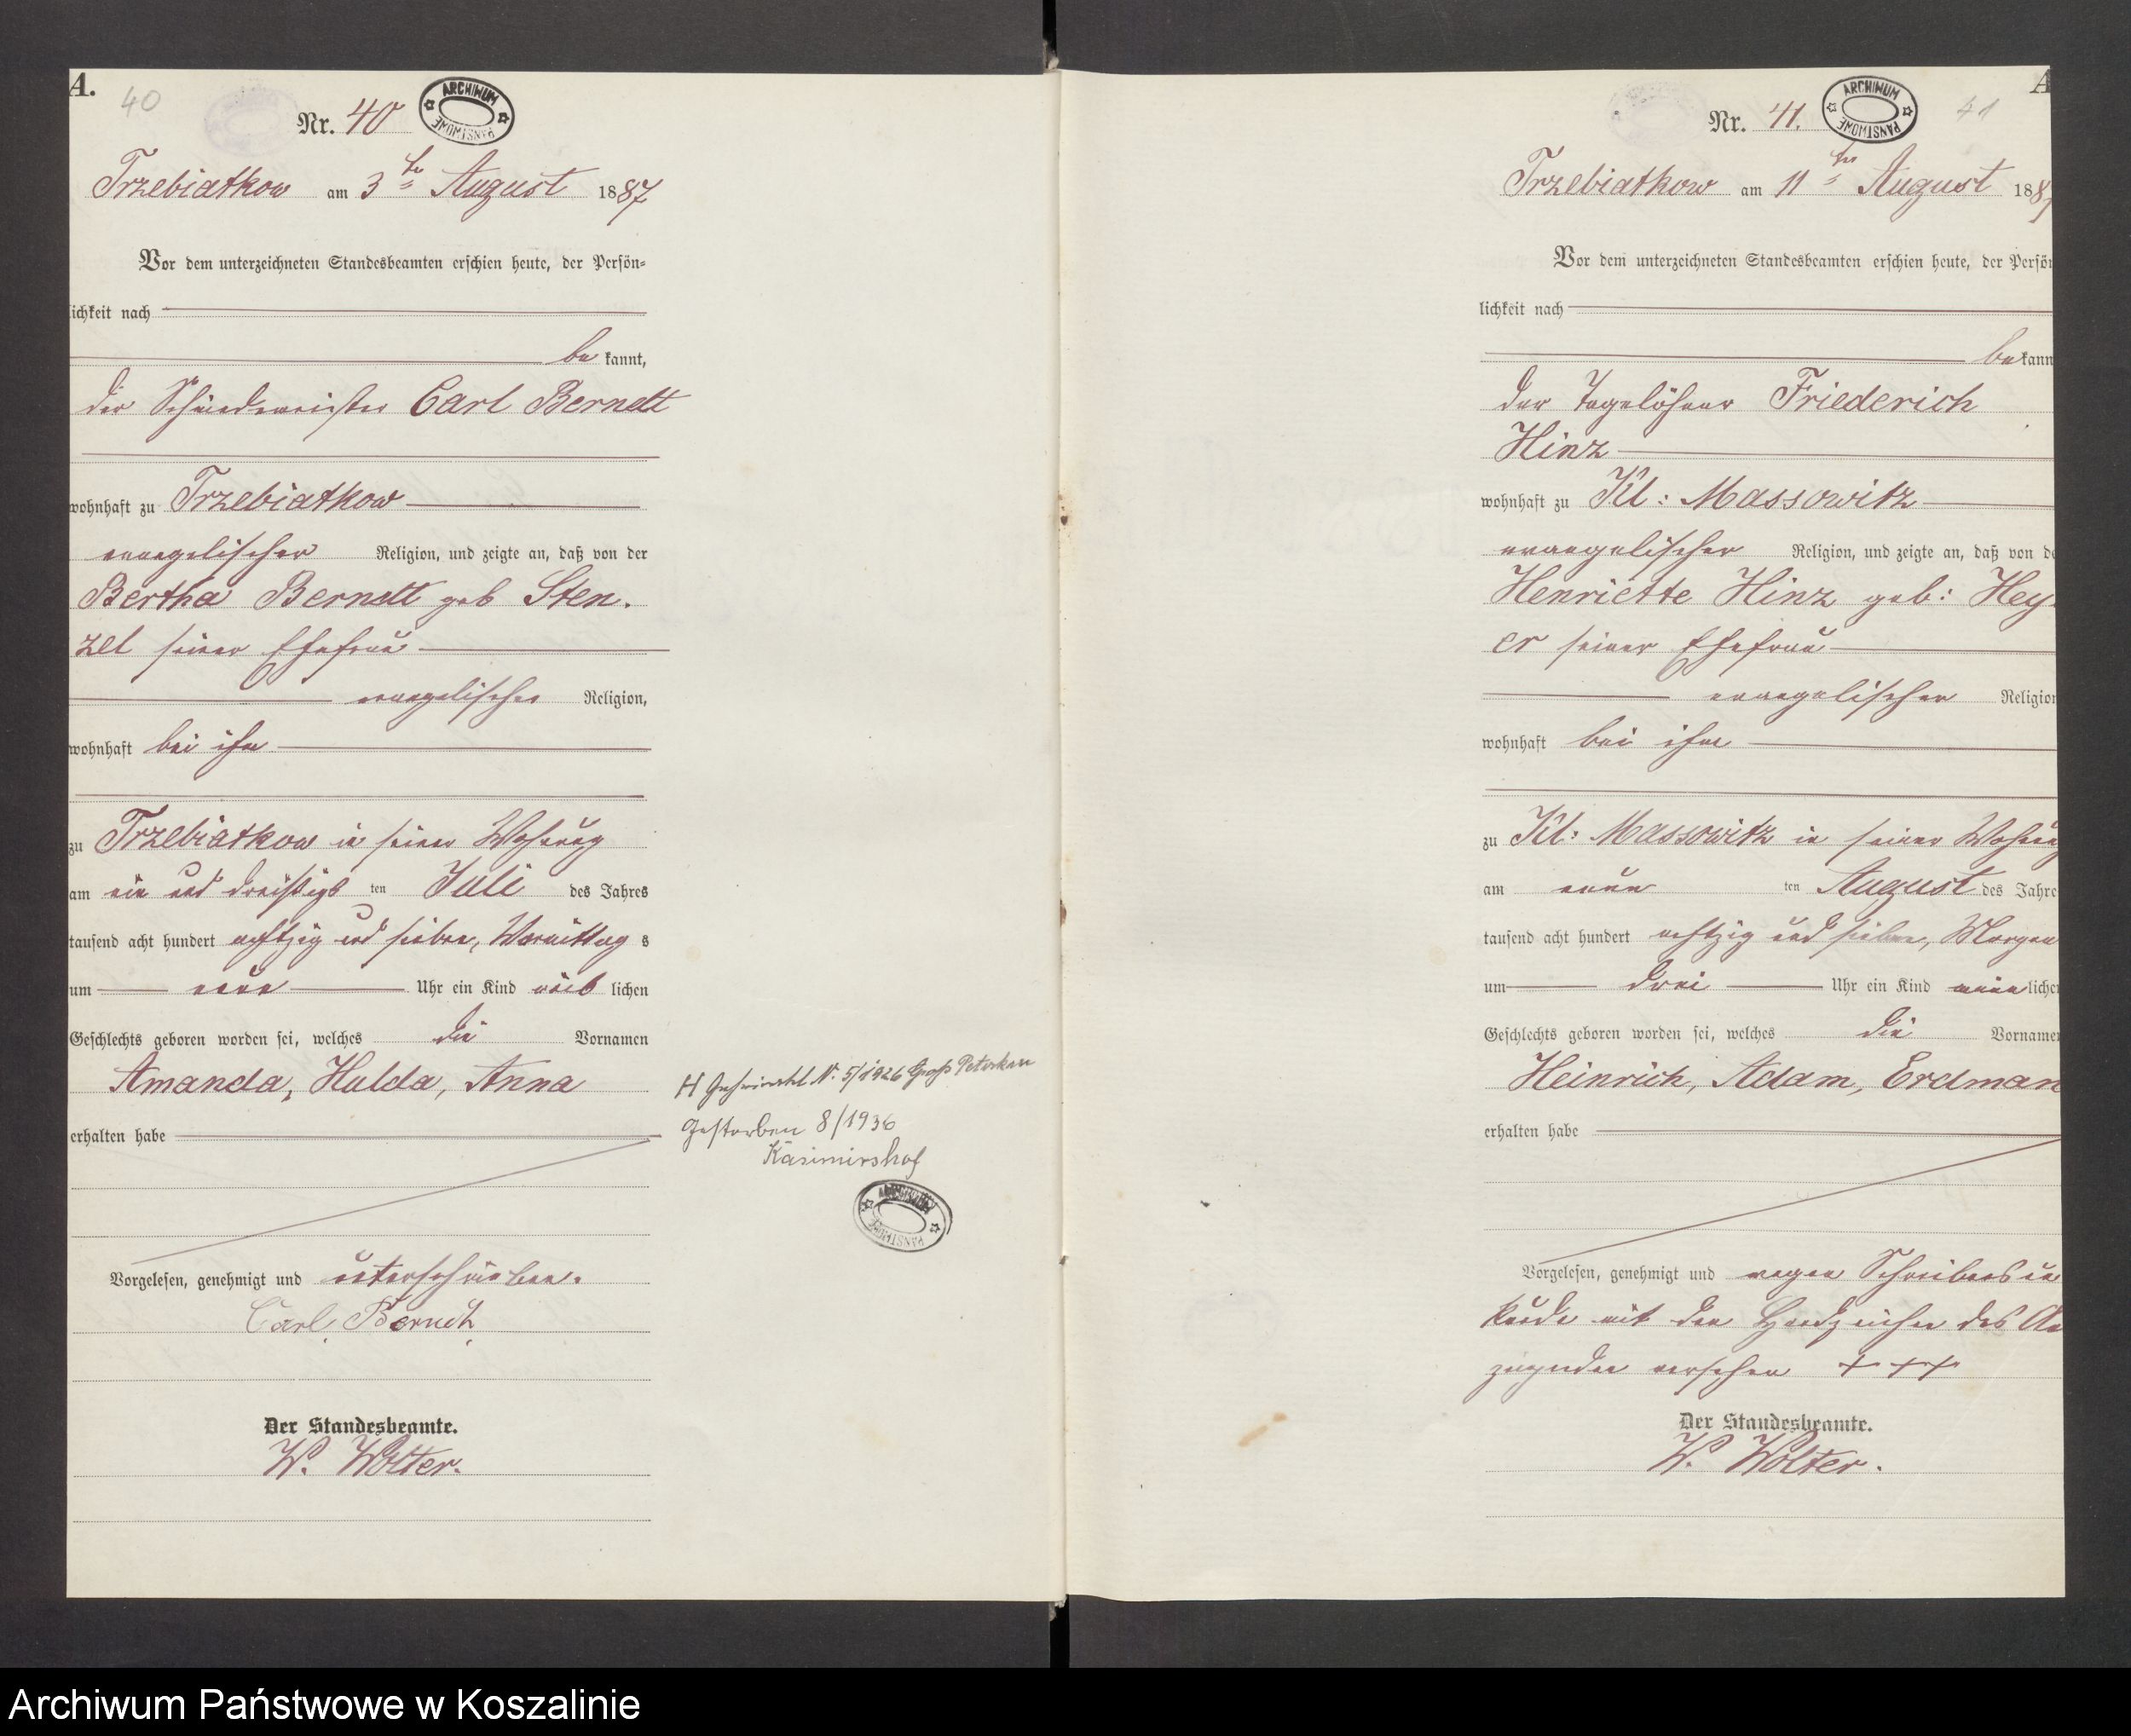 A.
40
Nr. 40
ARCHIWUM PAŃSTWOWE
Trzebiatkow am 3ten August 1887
Vor dem unterzeichneten Standesbeamten erschien heute, der Persön=
lichkeit nach
be kannt,
der Schmiedemeister Carl Bernett
wohnhaft zu Trzebiatkow
evangelischer Religion, und zeigte an, daß von der
Bertha Bernett geb Sten.
zel seiner Ehefrau
evangelischer Religion,
wohnhaft bei ihm
zu Trzebiatkow in seiner Wohnung
am ein und dreißigs ten Juli des Jahres
tausend acht hundert achtzig und sieben, Vormittag s
um neun Uhr ein Kind weib lichen
Geschlechts geboren worden sei, welches die Vornamen
Amanda, Hulda, Anna
erhalten habe
Vorgelesen, genehmigt und unterschrieben.
Carl Bernett
Der Standesbeamte.
W. Wolter.
H Geheiratet N. 5/1926 Groß Peterkau
Gestorben 8/1936
Kasimirshof
ARCHIWUM PAŃSTWOWE
A
41
Nr. 41.
ARCHIWUM PAŃSTWOWE
Trzebiatkow am 11ten August 1887
Vor dem unterzeichneten Standesbeamten erschien heute, der Persön
lichkeit nach
be kann
der Tagelöhner Friederich
Hinz
wohnhaft zu Kl: Massowitz
evangelischer Religion, und zeigte an, daß von de
Henriette Hinz geb: Hey.
er seiner Ehefrau
evangelischer Religion
wohnhaft bei ihm
zu Kl: Massowitz in seiner Wohnung
am neun ten August des Jahre
tausend acht hundert achtzig und sieben, Morgen
um drei Uhr ein Kind männ lichen
Geschlechts geboren worden sei, welches die Vornamen
Heinrich, Adam, Erdman
erhalten habe
Vorgelesen, genehmigt und wegen Schreibensun
kunde mit den Handzeichen des An
zeigenden versehen + + +
Der Standesbeamte.
W. Wolter.
Archiwum Państwowe w Koszalinie